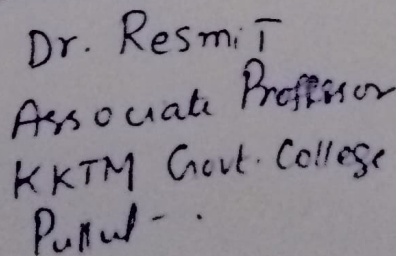 Dr. Resmi T
Associate Professor
KKTM Govt. College
Pullut - .